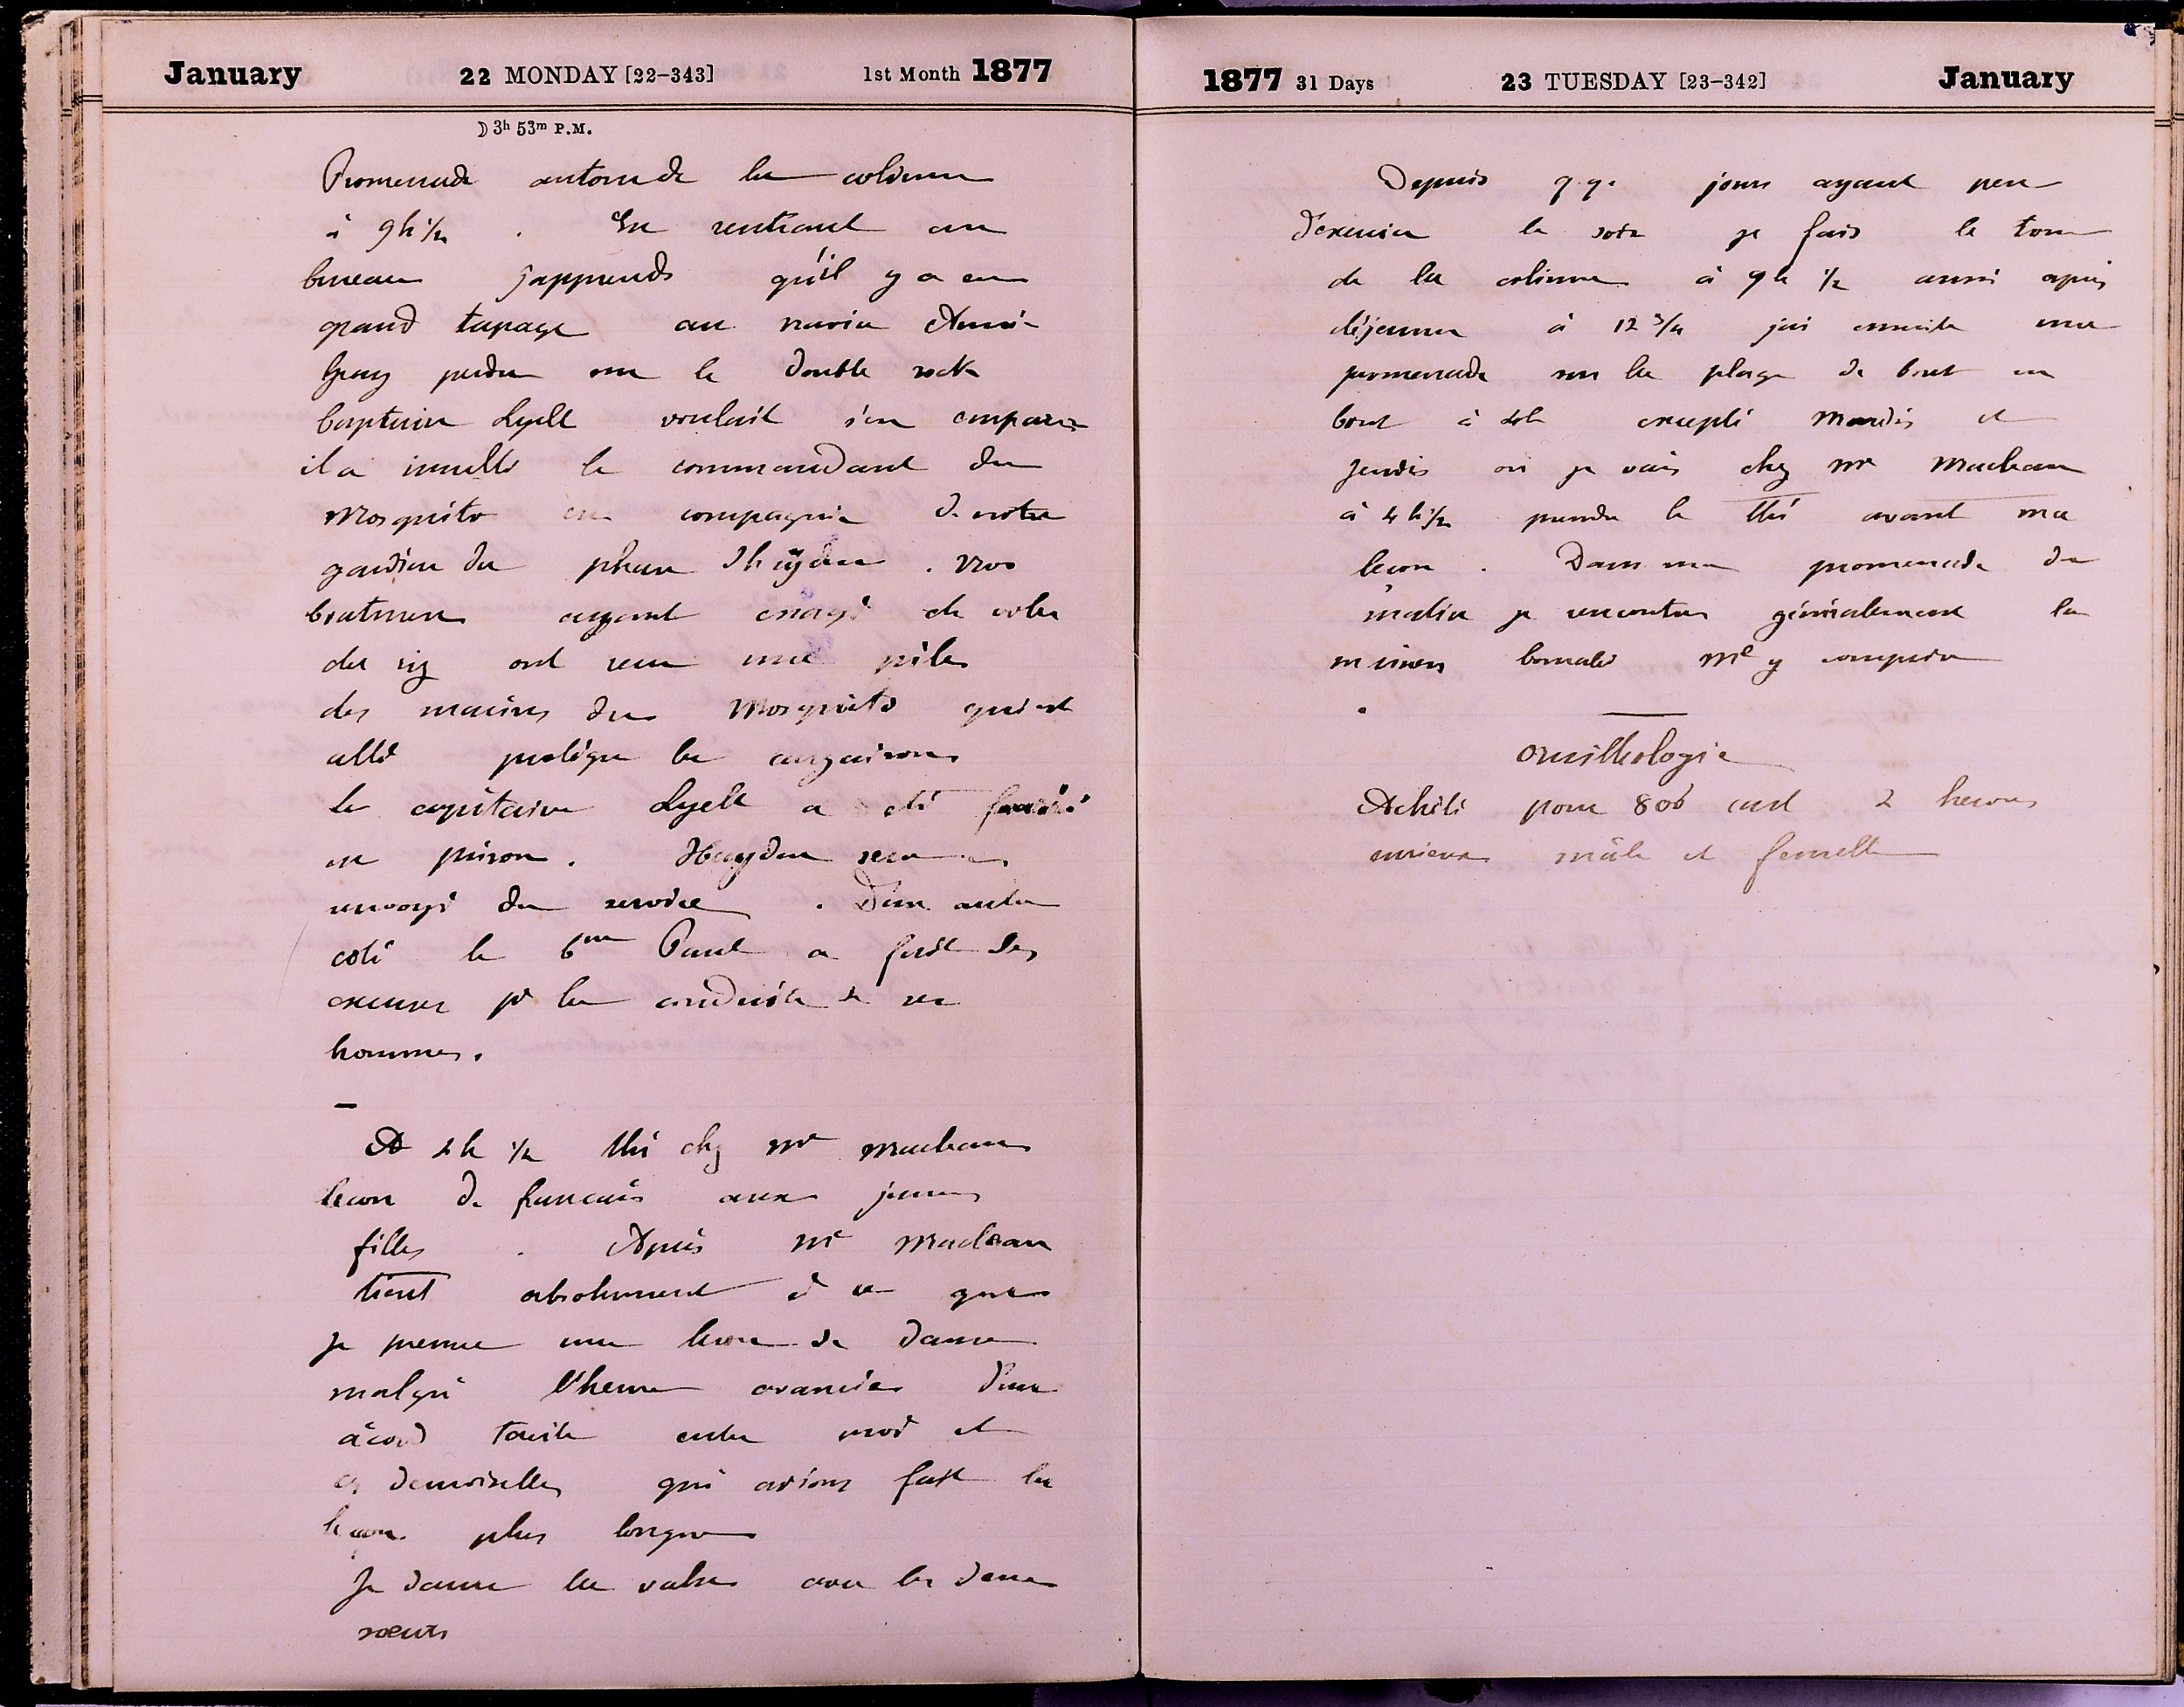 January 22 MONDAY [22-343] 1st Month 1877
☽ 3h 53m P.M.
Promenade autour de la colonne
à 9h 1/2 . En rentrant au
bureau j'apprends qu'il y a eu
grand tapage au navire
Gray perdu sur le double rock
Captain Lyell voulait s'en emparer
il a insulté le commandant du
Mosquito en compagnie de notre
gardien du phare Hayden . Nos
boatmen ayant essayé de voler
du riz ont reçu une pile
des marins du Mosquito qui est
allé protéger la cargaison
le capitaine Lyell a été fourré
en prison . Hayden sera
renvoyé du service . D'un autre
coté le Paul a fait des
excuses pr la conduite de ses
hommes .
A 4h 1/2 thé chez Mr Maclean
lecon de francais aux jeunes
filles . Après Mr Maclean
tient absolument à ce que
je prenne une lecon de danse
malgré l'heure avancée d'un
acord tacite entre moi et
ces demoiselles qui avions fait la
lecon plus longue
Je danse la valse avec les deux
sœurs
1877 31 Days 23 TUESDAY [23-342] January
Depuis q.q. jours ayant peu
d'exercice le soir je fais le tour
de la colonne à 9h 1/2 aussi après
déjeuner à 12 3/4 j'ai ensuite une
promenade sur la plage de bout en
bout à 4h excepté Mardis et
Jeudis où je vais chez Mr Maclean
à 4h 1/2 prendre le thé avant ma
lecon . Dans ma promenade du
matin je rencontre généralement la
Me y compris
ornithologie
Acheté pour 80 2 herons
curieux mâle et femelle